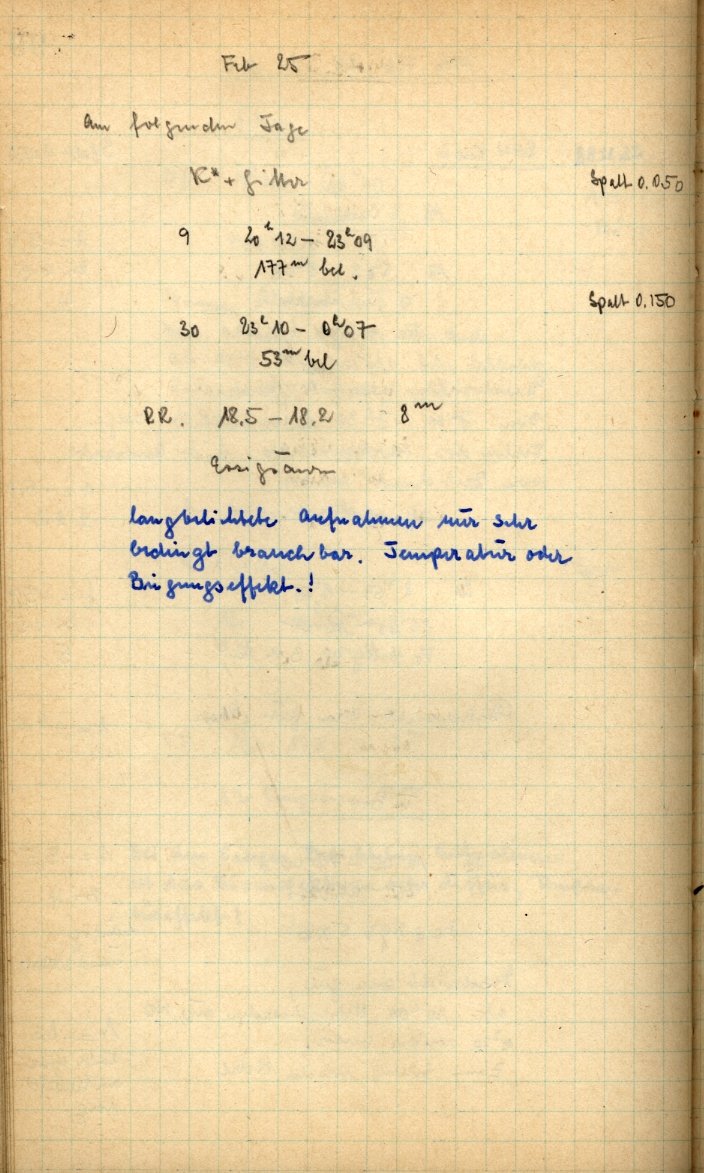 Feb 25
Am folgenden Tage
K* + Gitter
Spalt 0.050
9 20ʰ12 – 23ʰ09
177ᵐ bel.
Spalt 0.150
30 23ʰ10 – 0ʰ07
53ᵐ bel
RR. 18.5 – 18.2 8ᵐ
Essigsäure
langbelichtete Aufnahmen nur sehr
bedingt brauchbar. Temperatur oder
Biegungseffekt.!